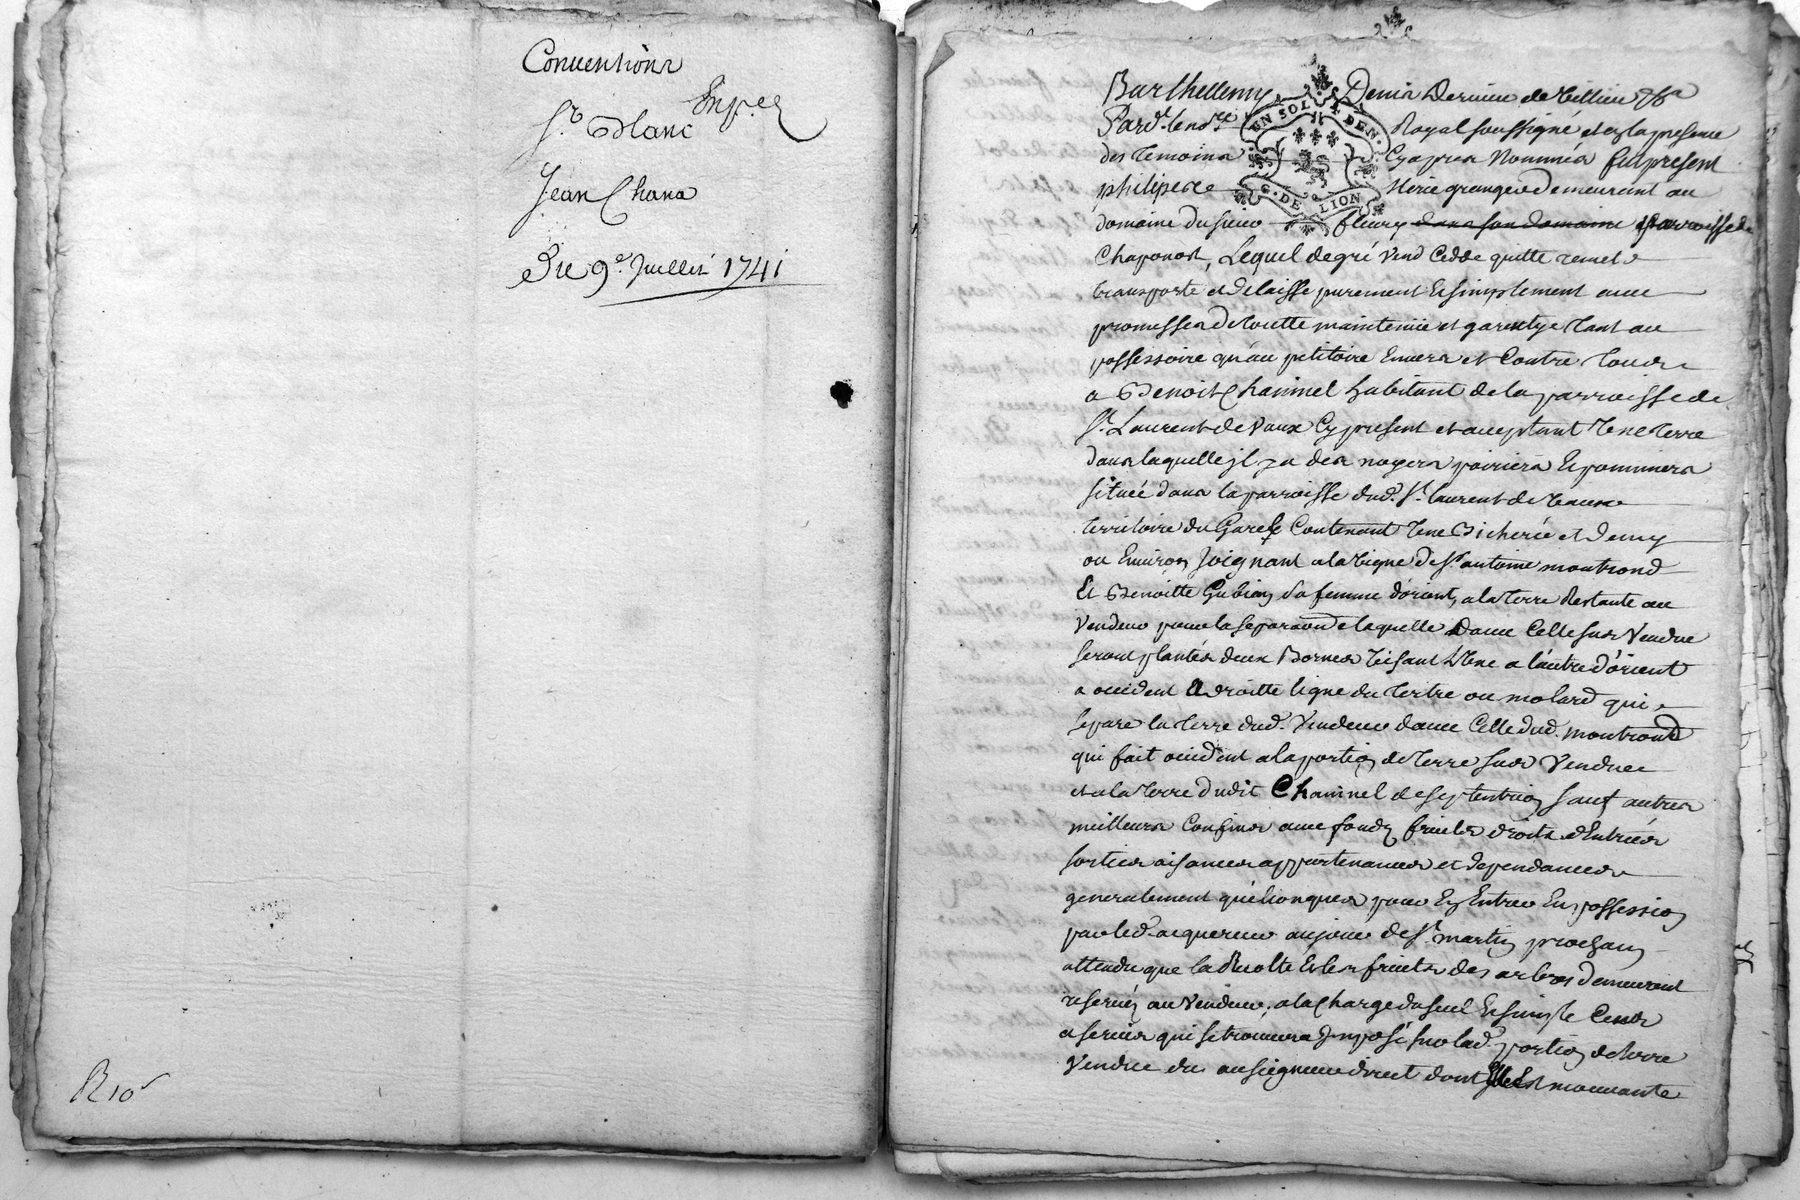 Conventions
Exp.ée
Sr. Blanc
Jean Chana
Du 9e. Juillet 1741
R 10s
UN SOL 4 DEN.
G. DE LION
Barthellemy Denis
Pard.t le no.re Royal soussigné et en la presence
des temoins Cy apres nommés fut present
philipe Merie granger demeurant au
domaine du sieur fleury dans son domaine parroisse de
Chaponost, Lequel de gré vend Cedde quitte remet
transporte et delaisse purement Et simplement avec
promesses de toutte maintenüe et garentye tant au
possessoire qu'au petitoire Envers et Contre tous
a Benoit Chaninel habitant de la parroisse de
St. Laurent de Vaux Cy present et acceptant Une terre
dans laquelle jl y a des noyers poiriers Et pommiers
située dans la parroisse dud. St. laurent de Vaux
territoire du Contenant Une Bicherée et demy
ou Environ Joignant a la vigne de Sr antoine montrond
Et Benoitte Gubian sa femme d'orient, a la terre Restante au
Vendeur pour la separaon de laquelle Davec Celle sus Vendue
seront plantés deux Bornes visant L'Une a l'autre d'orient
a occident a droitte ligne du tertre ou molard qui
separe la terre dud. Vendeur davec Celle dud. montrond
qui fait occident a la portion de terre sus Vendue
et a la terre dudit Chaninel de septentrion sauf autres
meilleurs Confins avec fonds fruits droits d'Entrées
sorties aisances appartenances et dependances
generalement quelconques pour En Entrer En possession
par led. acquereur au jour de St. martin prochain
attendu que la Recolte Et les fruits des arbres demeurent
reservés au Vendeur; a la Charge du seul Et simple Cens
et servis qui se trouvera Imposé sur lad. portion de terre
Vendue du au seigneur direct dont Elle Est mouvante